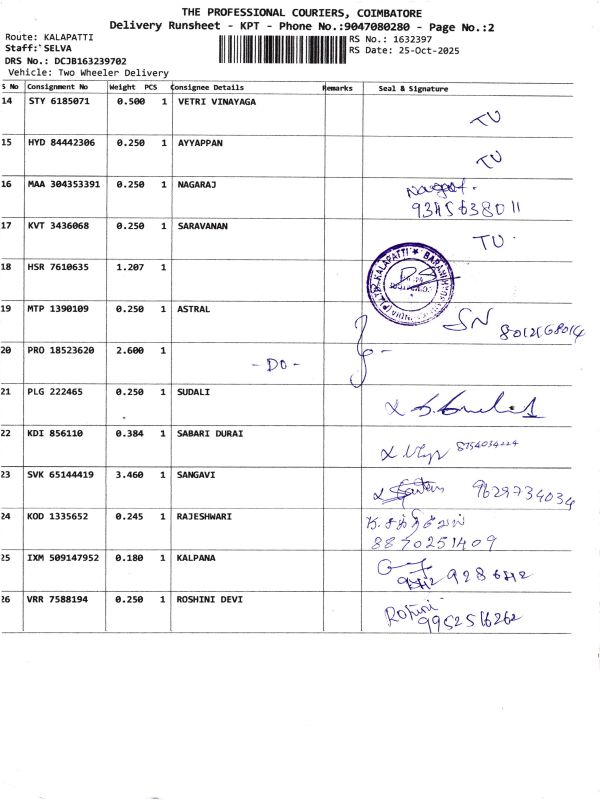 THE PROFESSIONAL COURIERS, COIMBATORE
Delivery Runsheet - KPT - Phone No.:9047080280 - Page No.:2
Route: KALAPATTI
Staff: SELVA
DRS No.: DCJB163239702
Vehicle: Two Wheeler Delivery
RS No.: 1632397
RS Date: 25-Oct-2025
S No Consignment No Weight PCS Consignee Details Remarks Seal & Signature
14 STY 6185071 0.500 1 VETRI VINAYAGA TU
15 HYD 84442306 0.250 1 AYYAPPAN TU
16 MAA 304353391 0.250 1 NAGARAJ
9345638011
17 KVT 3436068 0.250 1 SARAVANAN TU
18 HSR 7610635 1.207 1 KALAPATTI
19 MTP 1390109 0.250 1 ASTRAL SN
20 PRO 18523620 2.600 1 - DO -
21 PLG 222465 0.250 1 SUDALI
22 KDI 856110 0.384 1 SABARI DURAI 8754034224
23 SVK 65144419 3.460 1 SANGAVI 9629734034
24 KOD 1335652 0.245 1 RAJESHWARI
8870251409
25 IXM 509147952 0.180 1 KALPANA
26 VRR 7588194 0.250 1 ROSHINI DEVI
9952516262